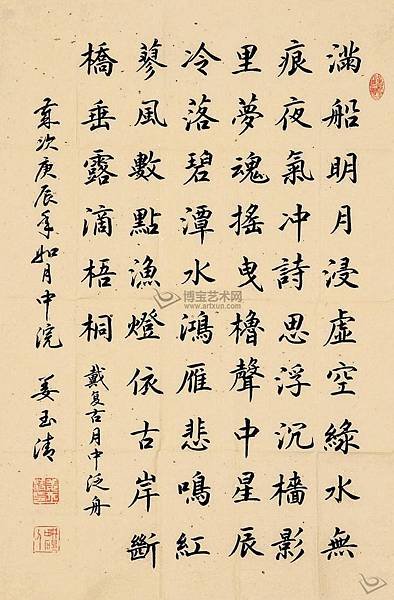 滿船明月浸虛空綠水無
痕夜氣冲詩思浮沉檣影
里夢魂搖曳櫓聲中星辰
冷落碧潭水鴻雁悲鳴紅
蓼風數點漁燈依古岸斷
橋垂露滴梧桐
戴复古月中泛舟
歲次庚辰年如月中浣 姜玉清
博宝艺术网
www.artxun.com